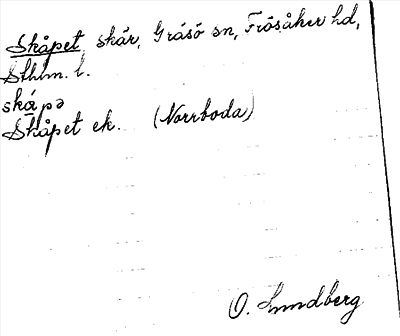 Skåpet skär, Gräsö sn, Frösåker hd,
Sthlm. l.
skåpə
Skåpet ek. (Norrboda)
O. Lundberg